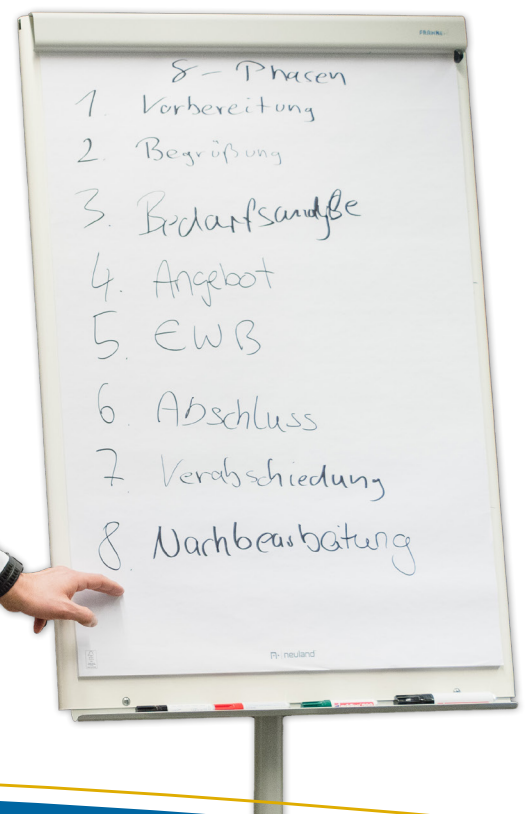 8 - Phasen
1. Vorbereitung
2. Begrüßung
3. Bedarfsanalyse
4. Angebot
5. EWB
6. Abschluss
7. Verabschiedung
8. Nachbearbeitung
neuland